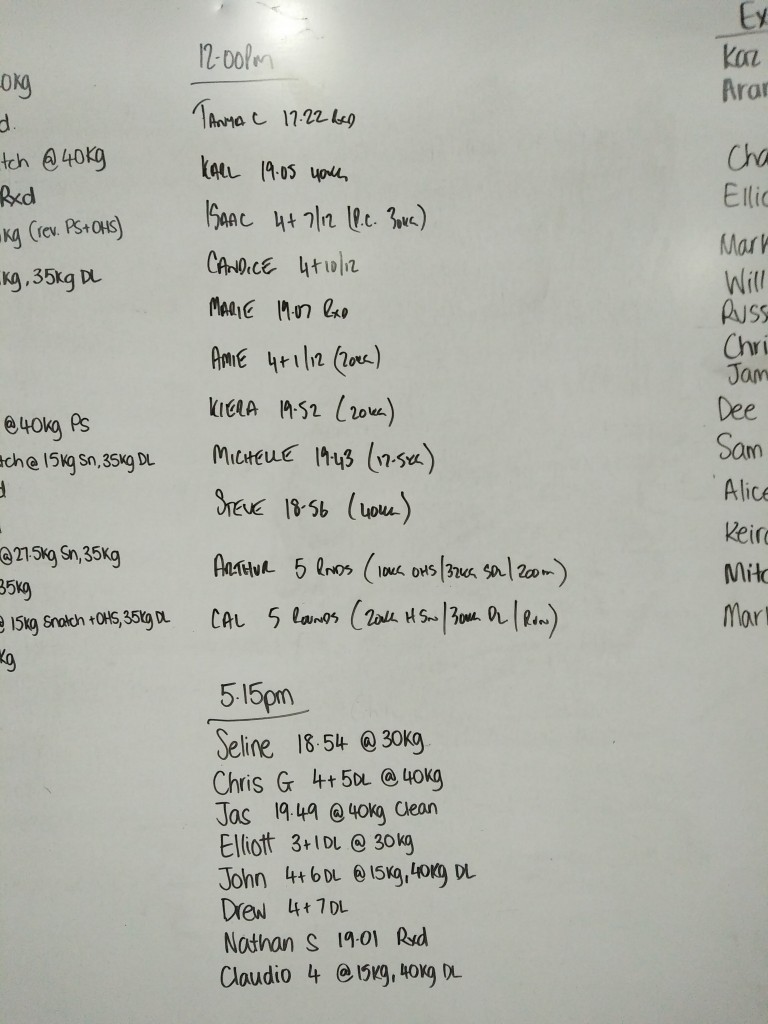 0kg
d.
tch @ 40kg
Rxd
kg (rev. PS+OHS)
kg, 35kg DL
@40kg PS
tch @ 15kg Sn, 35kg DL
d
@27.5kg Sn, 35kg
35kg
@ 15kg Snatch + OHS, 35kg DL
kg
12.00pm
TANYA C 17.22 RxD
KARL 19.05 40KG
ISAAC 4+7/12 (P.C. 30KG)
CANDICE 4+10/12
MARIE 19.07 RxD
AMIE 4+1/12 (20KG)
KIERA 19.52 (20KG)
MICHELLE 19.43 (17.5KG)
STEVE 18.56 (40KG)
ARTHUR 5 RNDS (10KG OHS/32KG SDL/200m)
CAL 5 ROUNDS (20KG H SN/30KG DL/RUN)
5.15pm
Seline 18.54 @ 30kg
Chris G 4+5DL @ 40kg
Jas 19.49 @ 40kg Clean
Elliott 3+1DL @ 30kg
John 4+6DL @ 15kg, 40kg DL
Drew 4+7DL
Nathan S 19.01 Rxd
Claudio 4 @ 15kg, 40kg DL
Ex
Kaz
Aran
Cha
Ellio
Mark
Will
Russ
Chri
Jam
Dee
Sam
Alice
Keira
Mitc
Mar